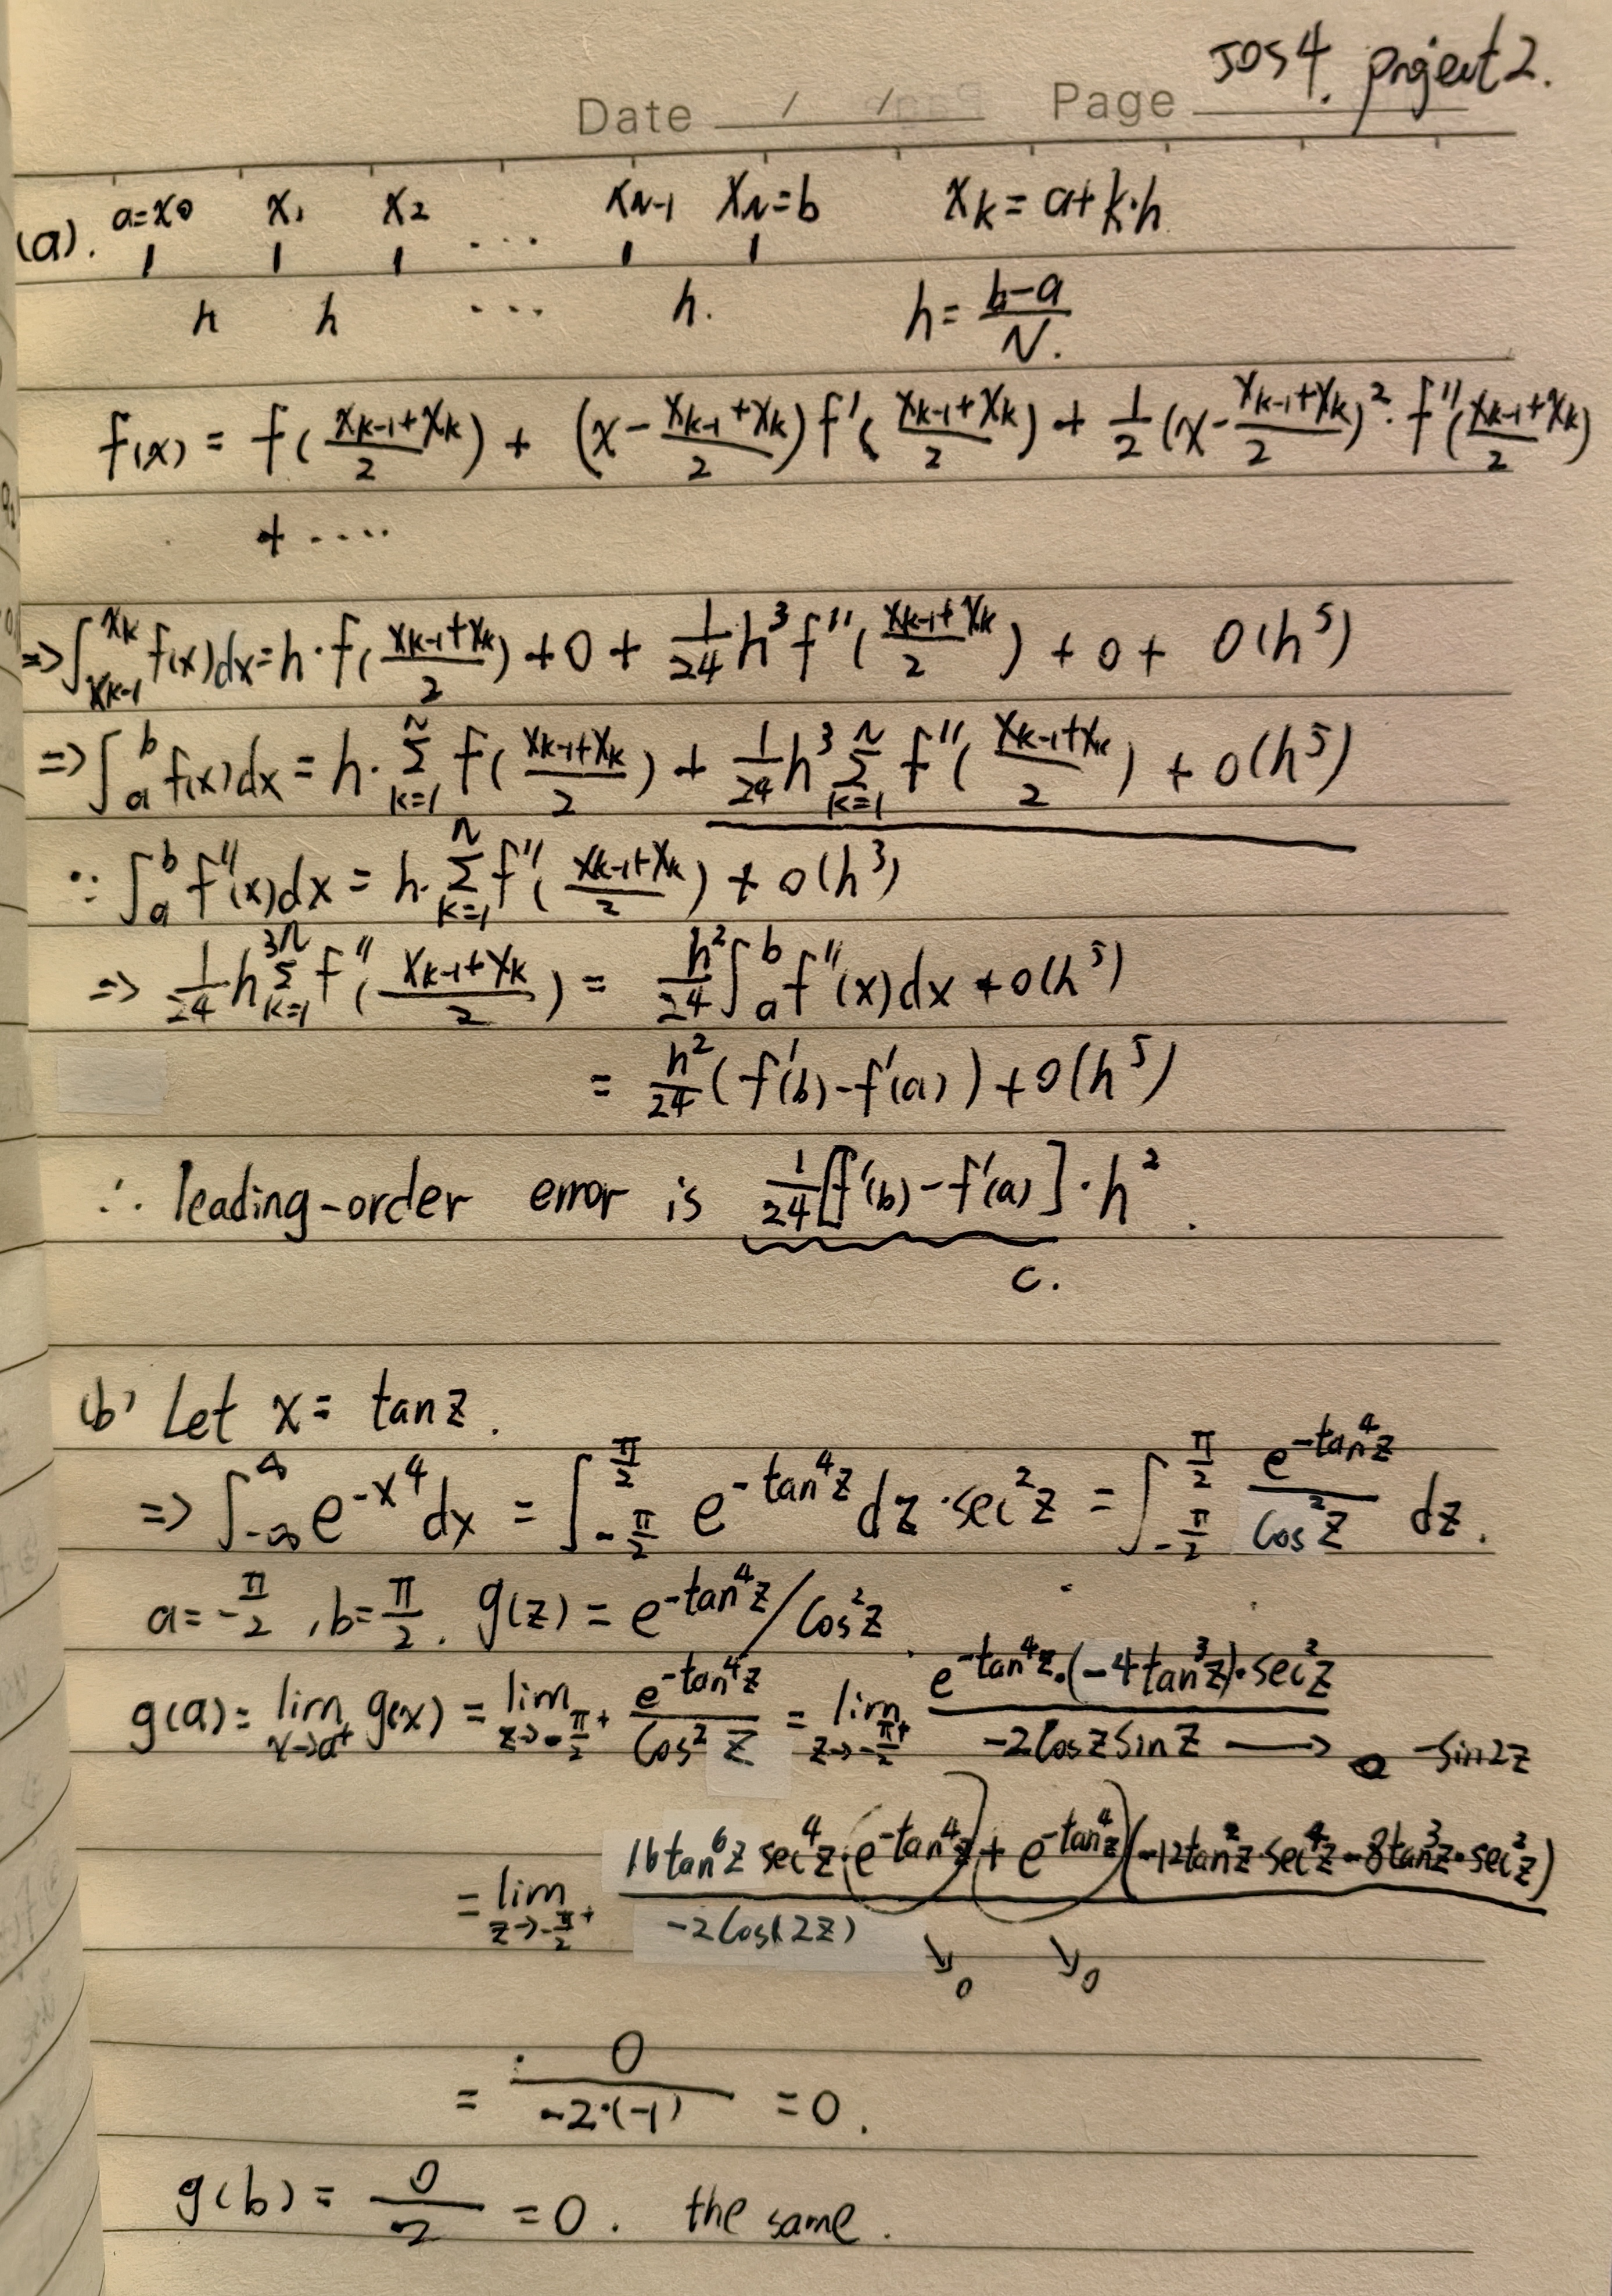 JDS4. project 2.
Date / / Page
(a). a=x₀ x₁ x₂ ... x_{N-1} x_N=b x_k = a+k·h
h h ... h. h = \frac{b-a}{N}.
f(x) = f(\frac{x_{k-1}+x_k}{2}) + (x-\frac{x_{k-1}+x_k}{2}) f'(\frac{x_{k-1}+x_k}{2}) + \frac{1}{2}(x-\frac{x_{k-1}+x_k}{2})^2 · f''(\frac{x_{k-1}+x_k}{2})
+ ....
=> ∫_{x_{k-1}}^{x_k} f(x)dx = h·f(\frac{x_{k-1}+x_k}{2}) + 0 + \frac{1}{24}h^3 f''(\frac{x_{k-1}+x_k}{2}) + 0 + O(h^5)
=> ∫_a^b f(x)dx = h·∑_{k=1}^{N} f(\frac{x_{k-1}+x_k}{2}) + \frac{1}{24}h^3 ∑_{k=1}^{N} f''(\frac{x_{k-1}+x_k}{2}) + O(h^5)
∵ ∫_a^b f''(x)dx = h·∑_{k=1}^{N} f''(\frac{x_{k-1}+x_k}{2}) + O(h^3)
=> \frac{1}{24}h^3 ∑_{k=1}^{N} f''(\frac{x_{k-1}+x_k}{2}) = \frac{h^2}{24}∫_a^b f''(x)dx + O(h^5)
= \frac{h^2}{24}(f'(b)-f'(a)) + O(h^5)
∴ leading-order error is \frac{1}{24}[f'(b)-f'(a)]·h^2.
C.
(b) Let x = tanz.
=> ∫_{-∞}^{∞} e^{-x^4}dx = ∫_{-\frac{π}{2}}^{\frac{π}{2}} e^{-tan^4z}dz·sec^2z = ∫_{-\frac{π}{2}}^{\frac{π}{2}} \frac{e^{-tan^4z}}{cos^2z} dz.
a=-\frac{π}{2}, b=\frac{π}{2}. g(z) = e^{-tan^4z}/cos^2z.
g(a) = lim_{x→a^+} g(x) = lim_{z→-\frac{π}{2}^+} \frac{e^{-tan^4z}}{cos^2z} = lim_{z→-\frac{π}{2}^+} \frac{e^{-tan^4z}·(-4tan^3z)·sec^2z}{-2coszsinz} → -sin2z
= lim_{z→-\frac{π}{2}^+} \frac{16tan^6z sec^4z·(e^{-tan^4z}) + e^{-tan^4z}(-12tan^2z·sec^4z-8tan^3z·sec^2z)}{-2cos(2z)}
↘0 ↘0
= \frac{0}{-2·(-1)} = 0.
g(b) = \frac{0}{2} = 0. the same.